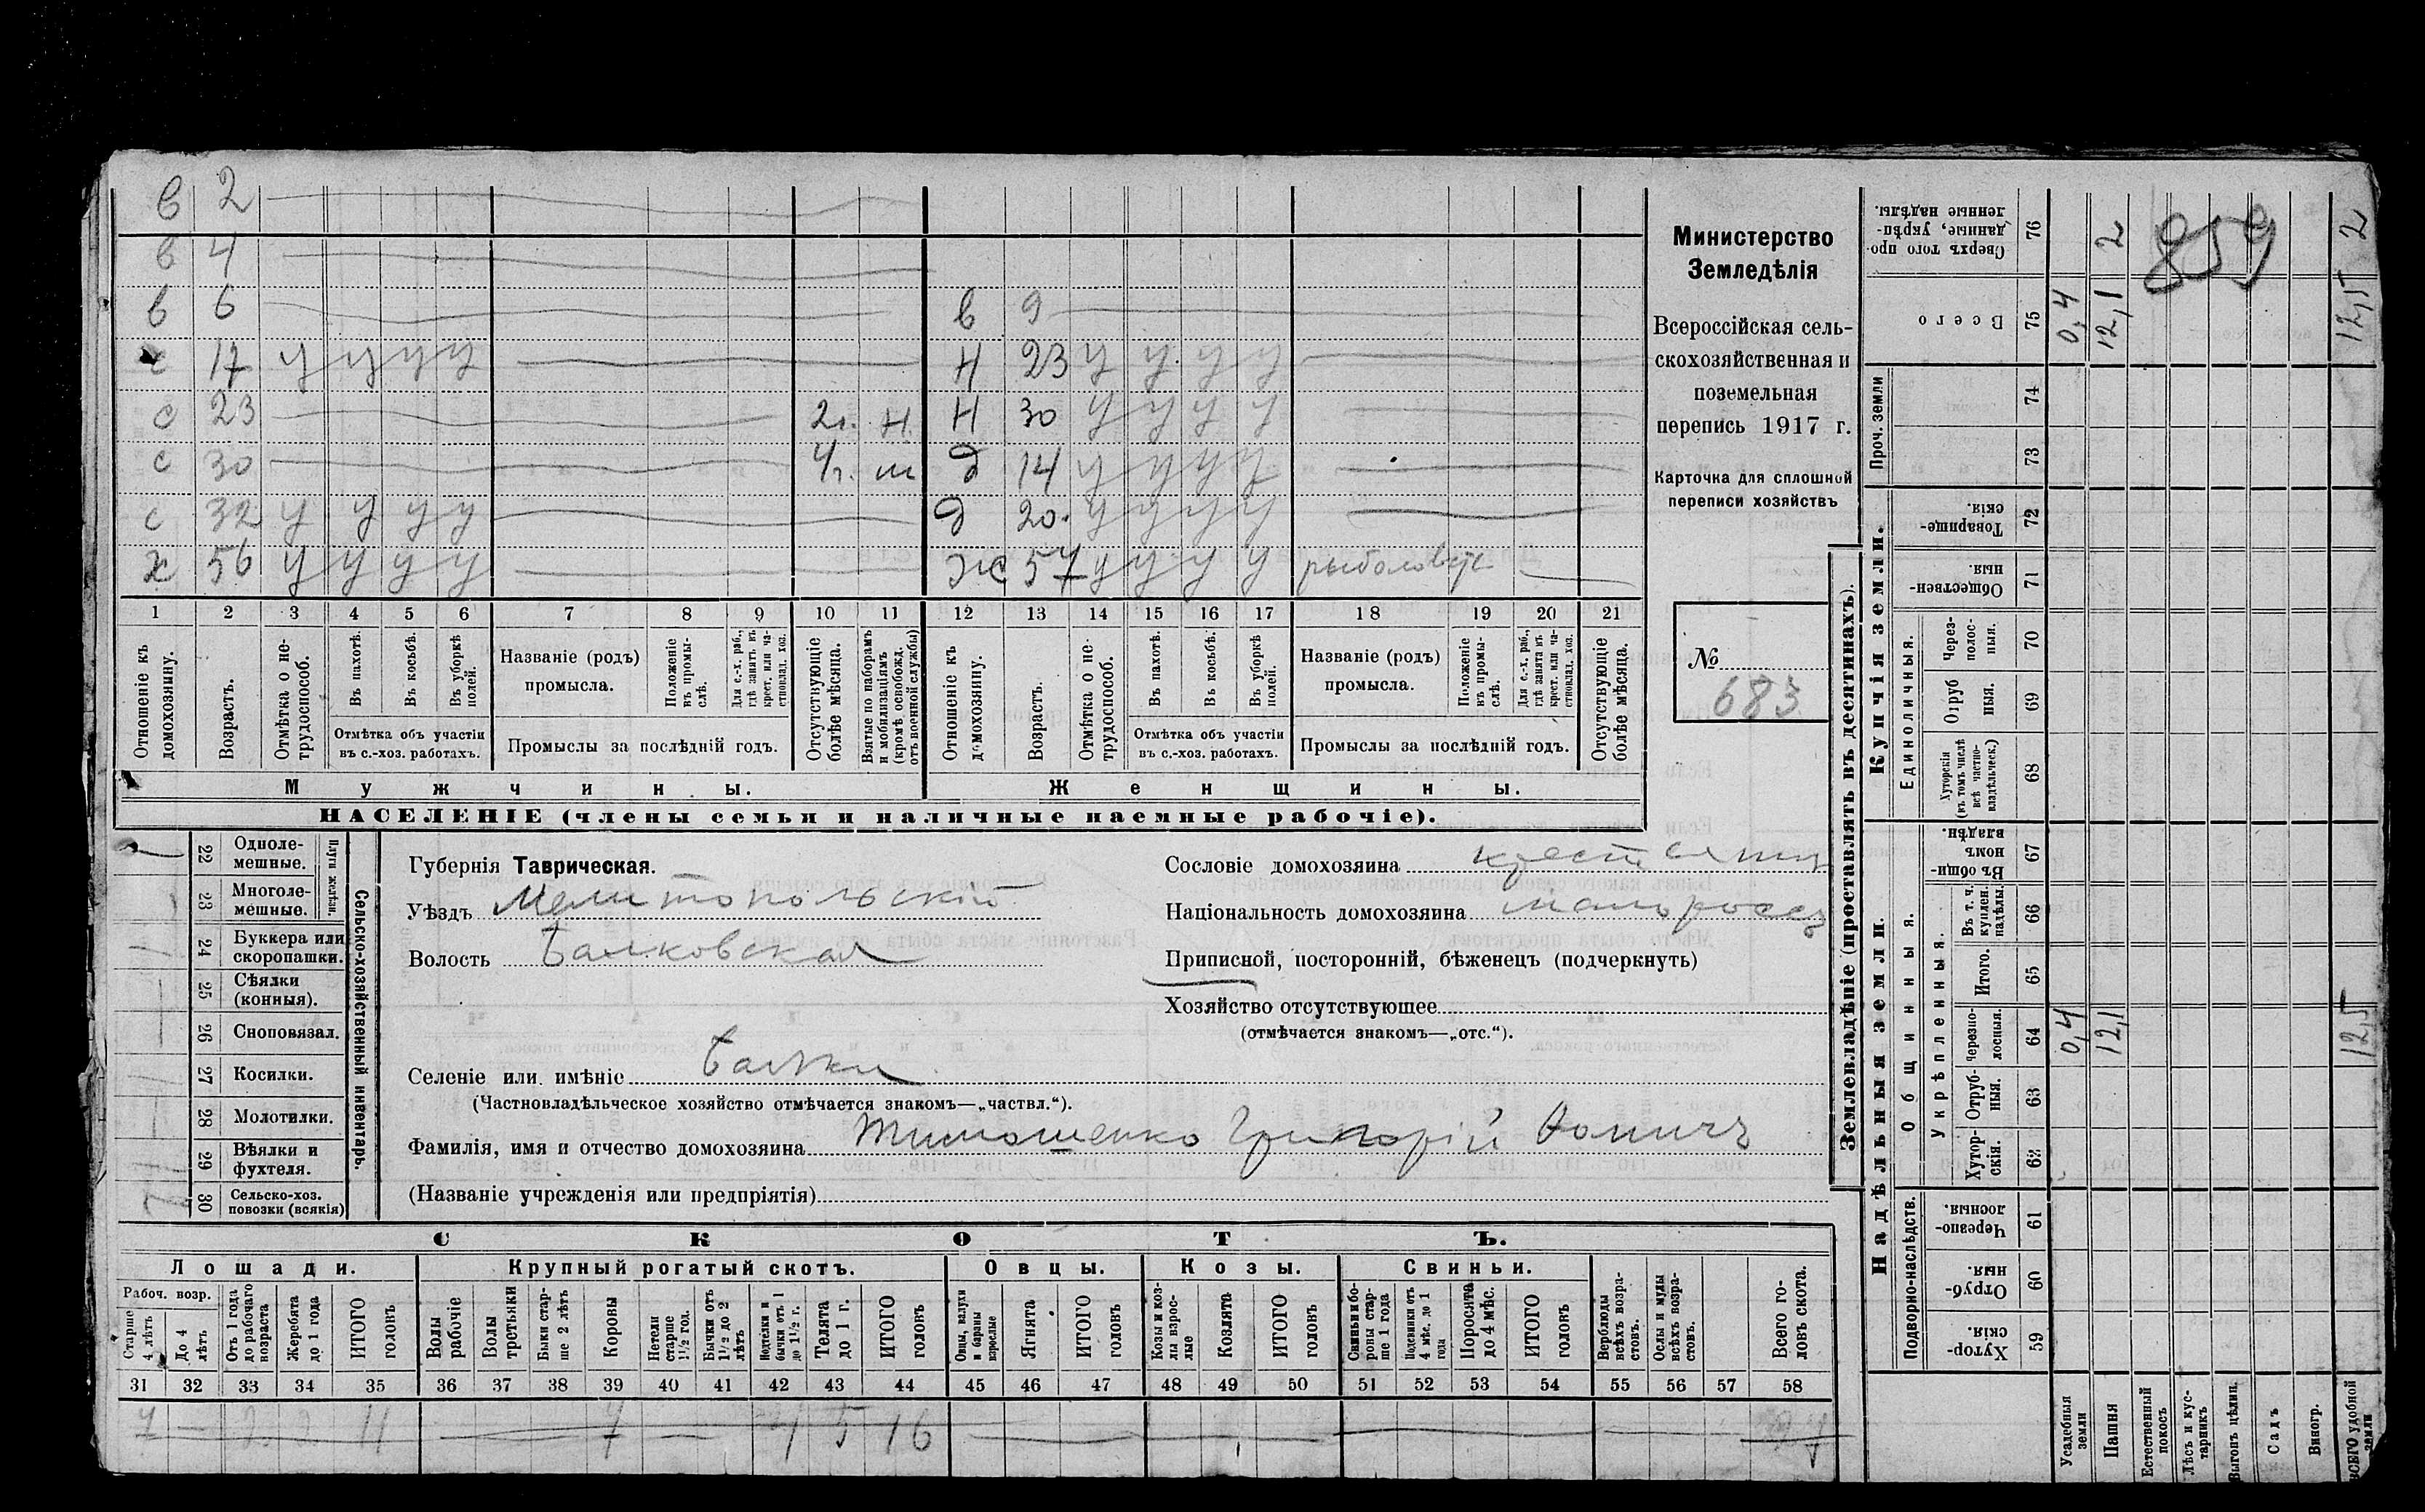 в 2
в 4
в 6 в 9
с 17 у у у у н 23 у у у у
с 23 2г. н. н 30 у у у у
с 30 4г. ш д 14 у у у у
с 32 у у у у д 20. у у у у
х 56 у у у у ж 57 у у у у
1 2 3 4 5 6 7 8 9 10 11 12 13 14 15 16 17 18 19 20 21
Отношеніе къ домохозяину.
Возрастъ.
Отмѣтка о не-трудоспособ.
Въ пахотѣ.
Въ косьбѣ.
Въ уборкѣ полей.
Отмѣтка объ участіи
въ с.-хоз. работахъ.
Названіе (родъ)
промысла.
Положеніе въ промы-слѣ.
Для с.-х. раб., гдѣ занятъ въ крест. или ча-стновлад. хоз.
Промыслы за послѣдній годъ.
Отсутствующіе болѣе мѣсяца.
Взятые по наборамъ и мобилизаціямъ (кромѣ освобожд. отъ военной службы)
Отношеніе къ домохозяину.
Возрастъ.
Отмѣтка о не-трудоспособ.
Въ пахотѣ.
Въ косьбѣ.
Въ уборкѣ полей.
Отмѣтка объ участіи
въ с.-хоз. работахъ.
Названіе (родъ)
промысла.
Положеніе въ промы-слѣ.
Для с.-х. раб., гдѣ занята въ крест. или ча-стновлад. хоз.
Промыслы за послѣдній годъ.
Отсутствующіе болѣе мѣсяца.
Мужчины. Женщины.
НАСЕЛЕНІЕ (члены семьи и наличные наемные рабочіе).
Министерство
Земледѣлія
Всероссійская сель-
скохозяйственная и
поземельная
перепись 1917 г.
Карточка для сплошной
переписи хозяйствъ
№
683
22 Одноле-
мешные.
23 Многоле-
мешные.
Плуги желѣзн.
24 Буккера или
скоропашки.
25 Сѣялки
(конныя).
26 Сноповязал.
27 Косилки.
28 Молотилки.
29 Вѣялки и
фухтеля.
30 Сельско-хоз.
повозки (всякія)
Сельско-хозяйственный инвентарь.
Губернія Таврическая.
Уѣздъ Мелитопольскій
Волость Балковская
Сословіе домохозяина крестьянинъ
Національность домохозяина малороссъ
Приписной, посторонній, бѣженецъ (подчеркнуть)
Хозяйство отсутствующее
(отмѣчается знакомъ—„отс.“).
Селеніе или имѣніе Балки
(Частновладѣльческое хозяйство отмѣчается знакомъ—„частвл.“).
Фамилія, имя и отчество домохозяина Тимошенко Григорій Фомичъ
(Названіе учрежденія или предпріятія)
СКОТЪ.
Лошади. Крупный рогатый скотъ. Овцы. Козы. Свиньи.
Рабоч. возр.
Старше 4 лѣтъ
До 4 лѣтъ
Отъ 1 года до рабочаго возраста
Жеребята до 1 года
ИТОГО головъ
Волы рабочіе
Волы третьяки
Быки стар-ше 2 лѣтъ
Коровы
Нетели старше 1½ год.
Бычки отъ 1½ до 2 лѣтъ
Нетелки и бычки отъ 1 до 1½ г.
Телята до 1 г.
ИТОГО головъ
Овцы, валухи и бараны взрослые
Ягнята
ИТОГО головъ
Козы и коз-лы взрос-лые
Козлята
ИТОГО головъ
Свиньи и бо-ровы стар-ше 1 года
Подсвинки отъ 4 мѣс. до 1 года
Поросята до 4 мѣс.
ИТОГО головъ
Верблюды всѣхъ возра-стовъ.
Ослы и мулы всѣхъ возра-стовъ.
Всего го-ловъ скота.
31 32 33 34 35 36 37 38 39 40 41 42 43 44 45 46 47 48 49 50 51 52 53 54 55 56 57 58
7 2 2 11 5 16
Землевладѣніе (проставлять въ десятинахъ).
Купчія земли.
Надѣльныя земли.
Сверхъ того про-данные, укрѣп-ленные надѣлы. 76
Всего 75
Проч. земли 74 73
Товарище-скія. 72
Обществен-ныя. 71
Единоличныя.
Через-полос-ныя. 70
Отруб-ныя. 69
Хуторскія (въ томъ числѣ всѣ частно-владѣльческ.) 68
Въ общи-номъ владѣн. 67
Общинныя.
Укрѣпленныя.
Въ т. ч. куплен. надѣлы. 66
Итого. 65
Черезпо-лосныя. 64
Отруб-ныя. 63
Хутор-скія. 62
Подворно-наслѣдств.
Черезпо-лосныя. 61
Отруб-ныя 60
Хутор-скія. 59
2
859
2
0,4
12,1
12,5
0,4
12,1
12,5
Усадебныя земли
Пашня
Естественный покосъ
Лѣсъ и кус-тарникъ
Выгонъ цѣлин.
Садъ
Виногр.
ВСЕГО удобной земли